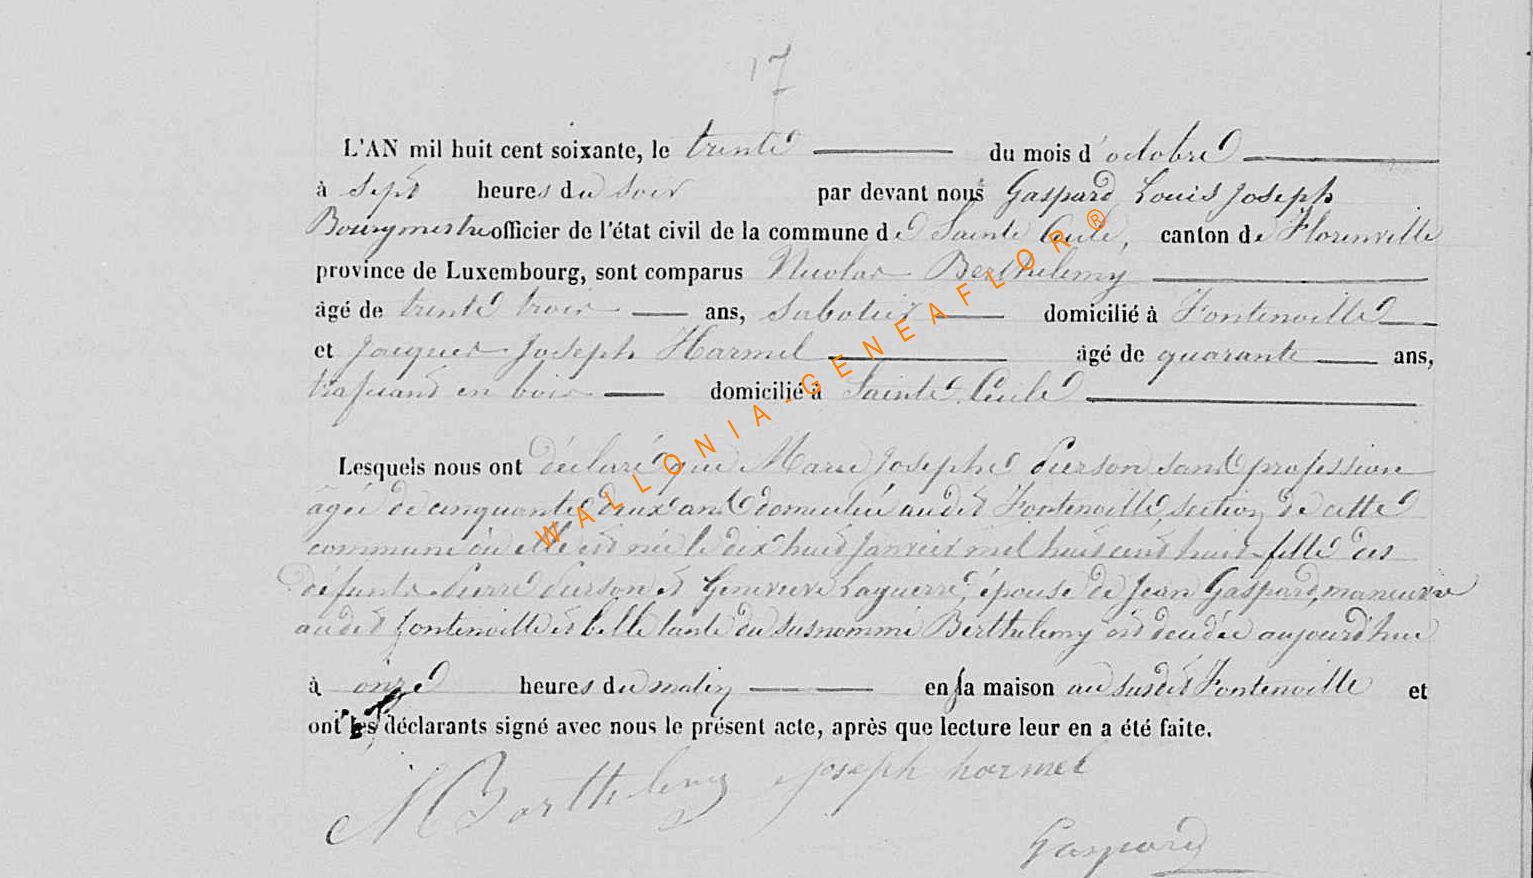 17
L'AN mil huit cent soixante, le trente du mois d'octobre
à sept heures du soir par devant nous Gaspard Louis Joseph
Bourgmestre officier de l'état civil de la commune de Sainte Cécile, canton de Florenville
province de Luxembourg, sont comparus Nicolas Berthelemy
âgé de trente trois ans, sabotier domicilié à Fontenoille
et Jacques Joseph Harmel âgé de quarante ans,
trafiquant en bois domicilié à Sainte Cécile
Lesquels nous ont déclaré que Marie Josephe Pierson sans profession
âgée de cinquante deux ans domiciliée audit Fontenoille section de cette
commune où elle est née le dix huit Janvier mil huit cent huit fille des
défunts Pierre Pierson et Genevieve Laguerre, épouse de Jean Gaspard, maneuvre
audit Fontenoille et belle tante du susnommé Berthelemy est décédée aujourd'hui
à onze heures du matin en sa maison au susdit Fontenoille et
ont les déclarants signé avec nous le présent acte, après que lecture leur en a été faite.
N Barthelemy Joseph harmel
Gaspard
WALLONIA-GENEAFLOR®